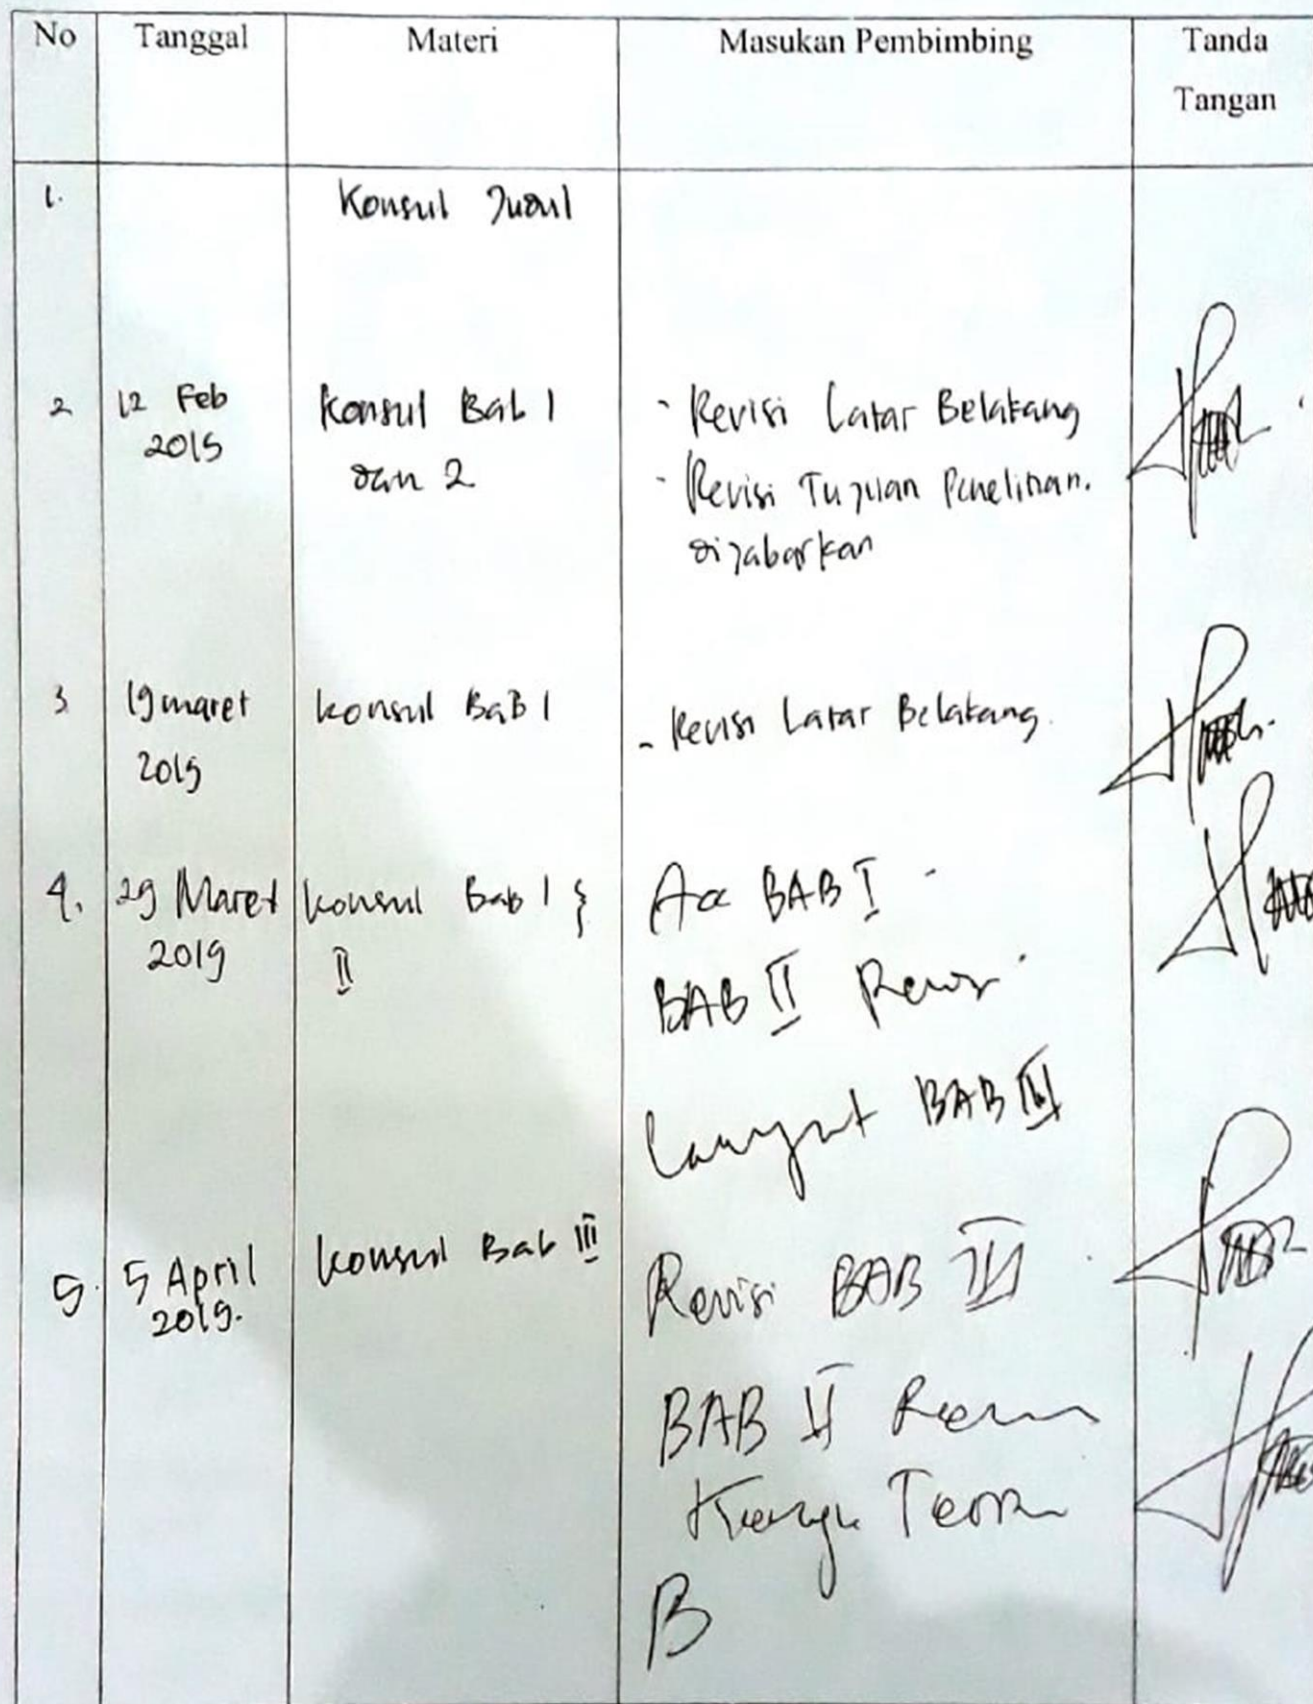 No Tanggal Materi Masukan Pembimbing Tanda
Tangan
1. Konsul Judul
2 12 Feb Konsul Bab 1 - Revisi Latar Belakang
2019 dan 2 - Revisi Tujuan Penelitian.
dijabarkan
3 19 maret konsul BaB 1 - Revisi Latar Belakang.
2019
4. 29 Maret konsul Bab 1 & Acc BAB I
2019 II BAB II Revisi
Lanjut BAB III
5. 5 April konsul Bab III Revisi BAB III
2019.
BAB II Revisi
Kerangka Teori
B